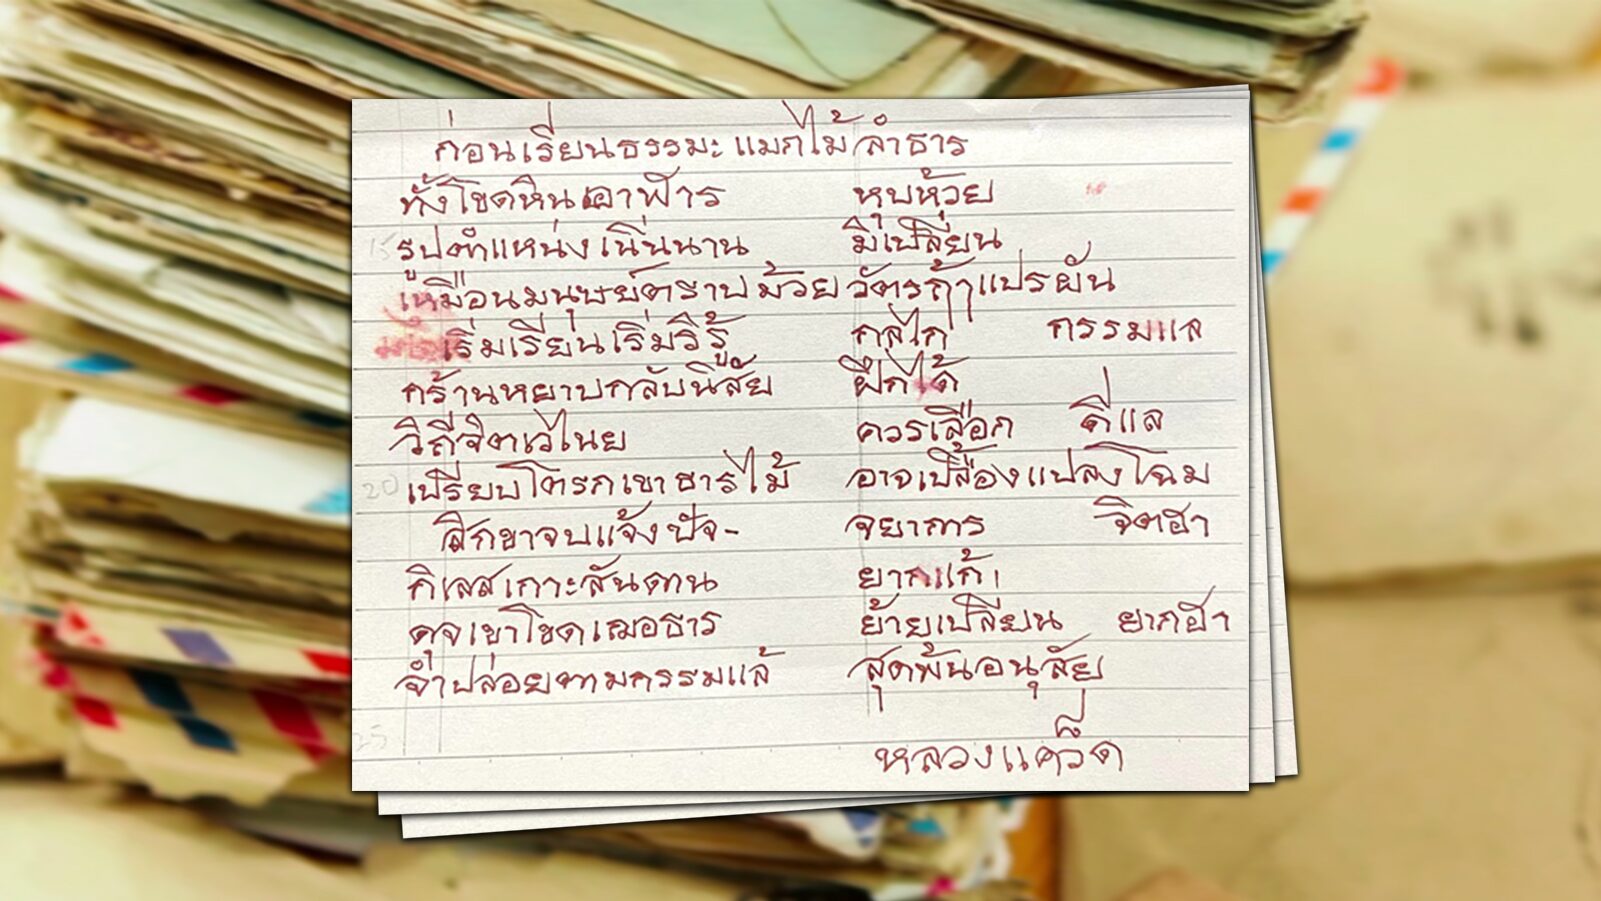 ก่อนเรียนธรรมะ แมกไม้ ลำธาร
ทั้งโขดหินเอาฬาร หุบห้วย
รูปตำแหน่งเนิ่นนาน มิเปลี่ยน
เหมือนมนุษย์ตราบม้วย วัตรถ้าแปรผัน
เริ่มเรียนเริ่มวิรู้ กลไก กรรมแล
กร้านหยาบกลับนิสัย ฝึกได้
วิถีจิตเวไนย ควรเลือก ดีแล
20 เปรียบโตรกเขาธารไม้ อาจเปลื้องแปลงโฉม
สิกขาจบแจ้งปัจ- จยาการ จิตฮา
กิเลสเกาะสันดาน ยากแก้
ดุจเขาโขดเฌอธาร ย้ายเปลี่ยน ยากฮา
จำปล่อยตามกรรมแล้ สุดพ้นอนุสัย
หลวงแคร็ด